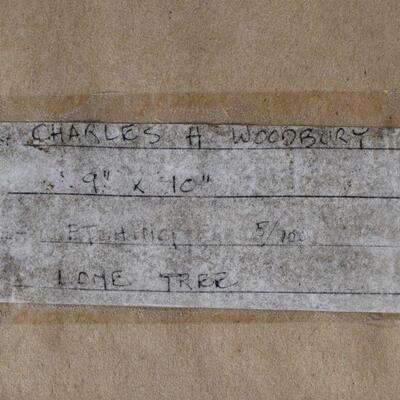 CHARLES H WOODBURY
9" x 10"
ETCHING 5/100
LONE TREE